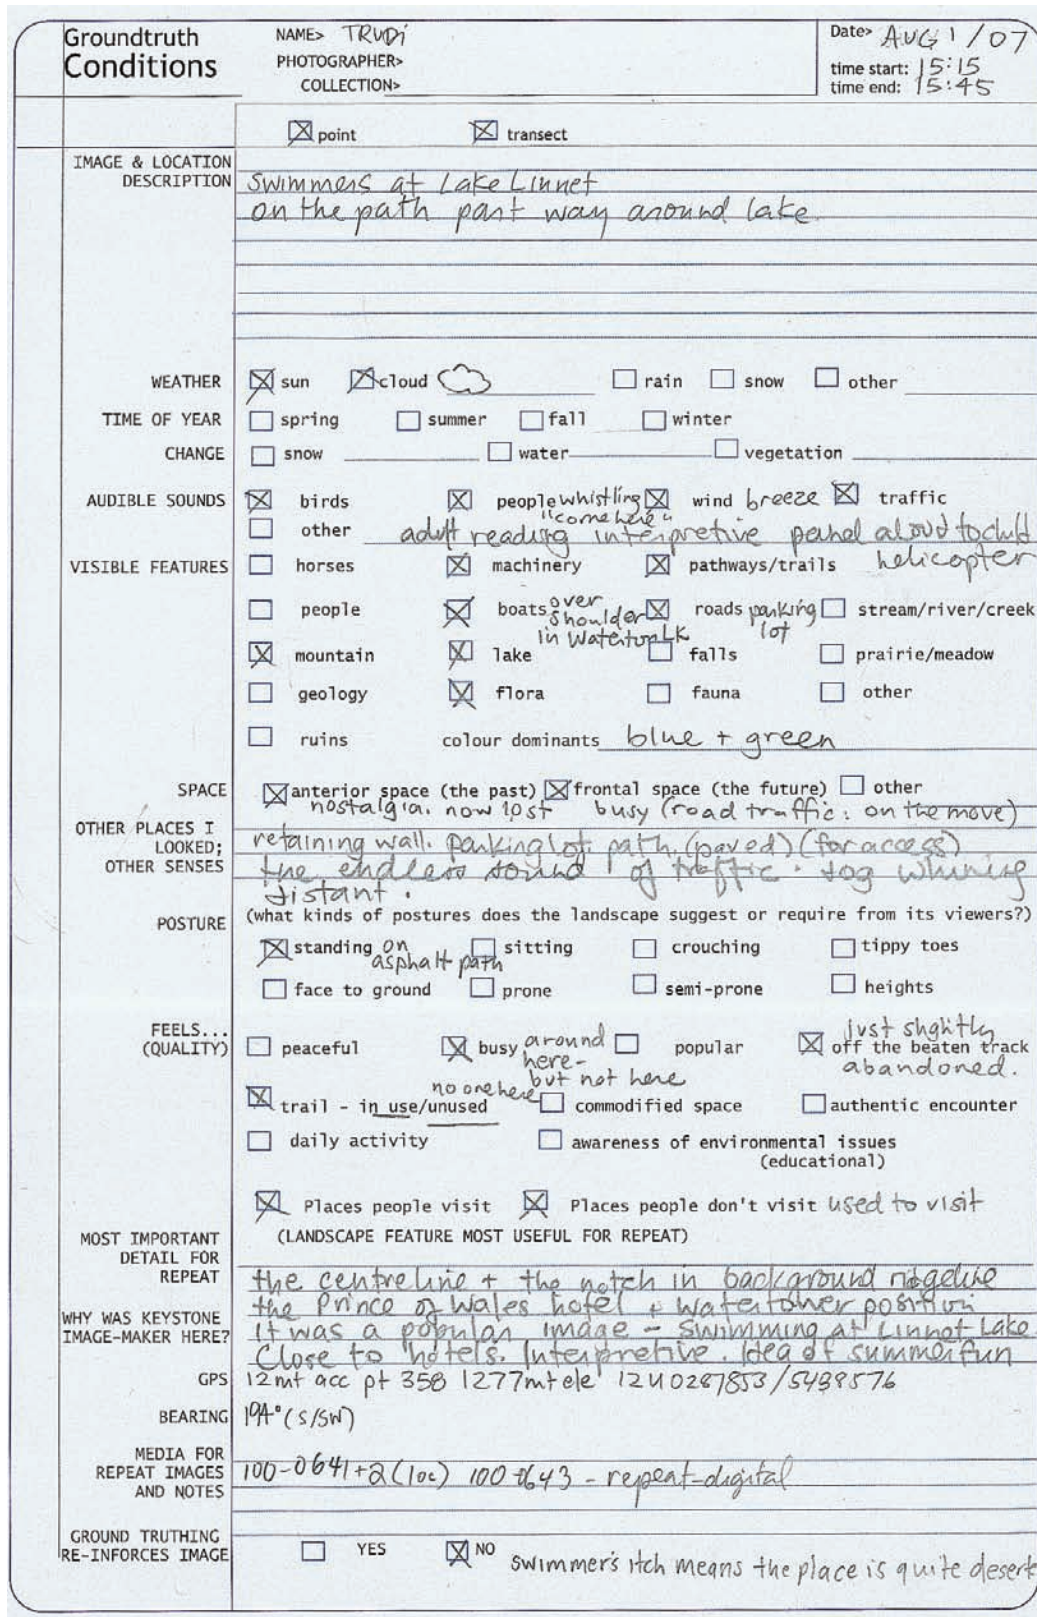 Groundtruth
Conditions
NAME> TRUDi
PHOTOGRAPHER>
COLLECTION>
Date> AUG 1/07
time start: 15:15
time end: 15:45
☒ point ☒ transect
IMAGE & LOCATION
DESCRIPTION
swimmers at Lake Linnet
on the path part way around lake.
WEATHER ☒ sun ☒ cloud ☐ rain ☐ snow ☐ other
TIME OF YEAR ☐ spring ☐ summer ☐ fall ☐ winter
CHANGE ☐ snow ☐ water ☐ vegetation
AUDIBLE SOUNDS ☒ birds ☒ people whistling "come here" ☒ wind breeze ☒ traffic
☐ other adult reading interpretive panel aloud to child
helicopter
VISIBLE FEATURES ☐ horses ☒ machinery ☒ pathways/trails
☐ people ☒ boats over shoulder in Waterton LK ☒ roads parking lot ☐ stream/river/creek
☒ mountain ☒ lake ☐ falls ☐ prairie/meadow
☐ geology ☒ flora ☐ fauna ☐ other
☐ ruins colour dominants blue + green
SPACE ☒ anterior space (the past) ☒ frontal space (the future) ☐ other
nostalgia. now lost busy (road traffic: on the move)
OTHER PLACES I
LOOKED;
OTHER SENSES
retaining wall. parking lot. path. (paved) (for access)
the endless sound of traffic. dog whining
distant.
POSTURE (what kinds of postures does the landscape suggest or require from its viewers?)
☒ standing on asphalt path ☐ sitting ☐ crouching ☐ tippy toes
☐ face to ground ☐ prone ☐ semi-prone ☐ heights
FEELS...
(QUALITY)
☐ peaceful ☒ busy around here- but not here ☐ popular ☒ just slightly off the beaten track abandoned.
☒ trail - in use/unused no one here ☐ commodified space ☐ authentic encounter
☐ daily activity ☐ awareness of environmental issues
(educational)
☒ Places people visit ☒ Places people don't visit used to visit
MOST IMPORTANT
DETAIL FOR
REPEAT
(LANDSCAPE FEATURE MOST USEFUL FOR REPEAT)
the centreline + the notch in background ridgeline
the Prince of Wales hotel + watertower position
WHY WAS KEYSTONE
IMAGE-MAKER HERE?
It was a popular image - swimming at Linnet Lake
Close to hotels. Interpretive. Idea of summer fun
GPS 12mt acc pt 358 1277mt ele 12U0287853/5438576
BEARING 194° (S/SW)
MEDIA FOR
REPEAT IMAGES
AND NOTES
100-0641+2 (loc) 100-0643 - repeat-digital
GROUND TRUTHING
RE-INFORCES IMAGE
☐ YES ☒ NO swimmer's itch means the place is quite desert